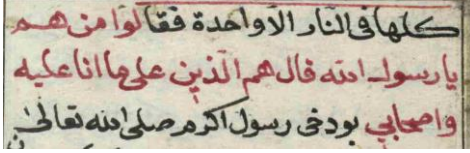 كلها فى النار الا واحدة فقالوا من هم
يا رسول الله قال هم الذين على ما انا عليه
واصحابي بودخى رسول اكرم صلى الله تعالى